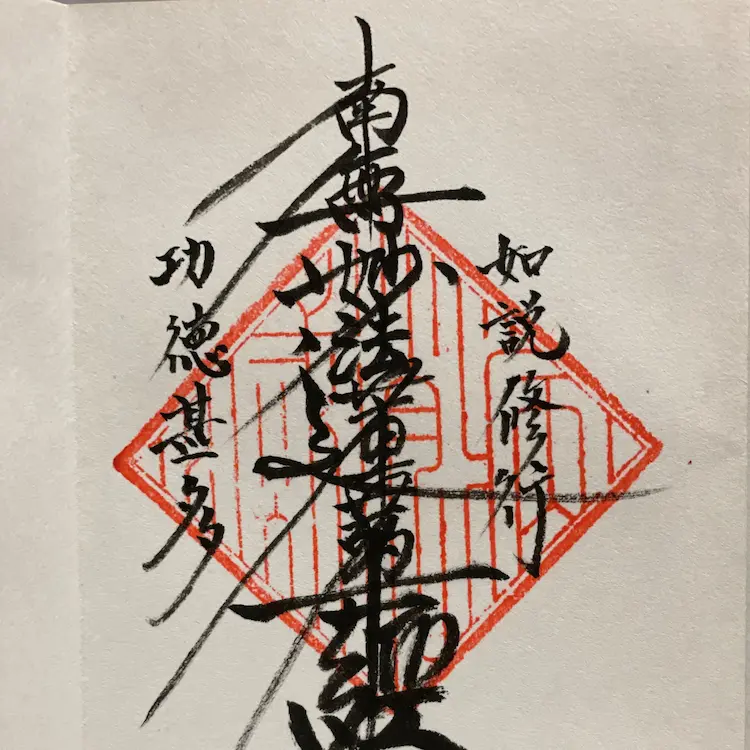 如説修行
南無妙法蓮華経
功徳甚多